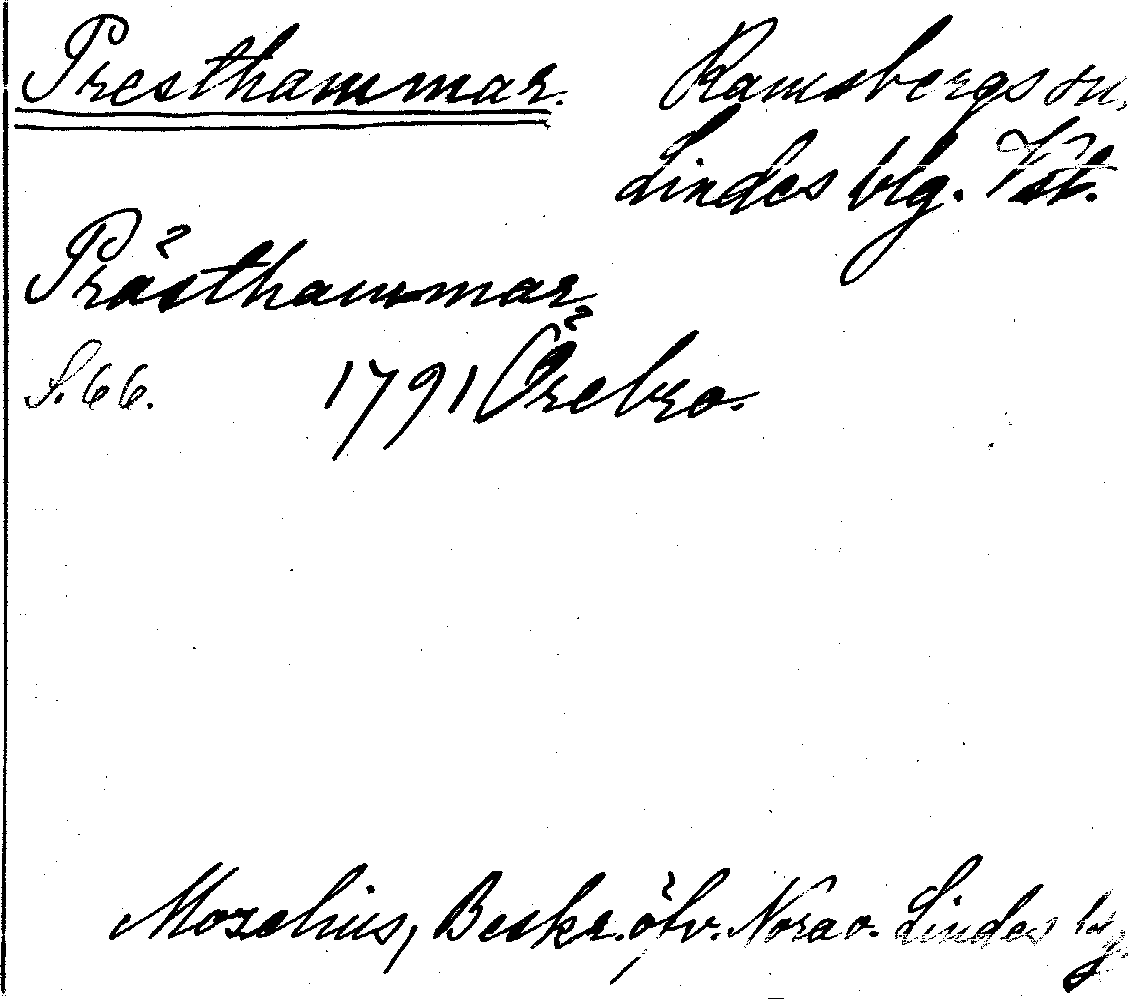 Presthammar.
Ramsbergs sn,
Lindes blg. Vstl.
Prästhammar
S. 66. 1791 Örebro.
Mozelius, Beskr. öfv. Nora o. Lindes bg.